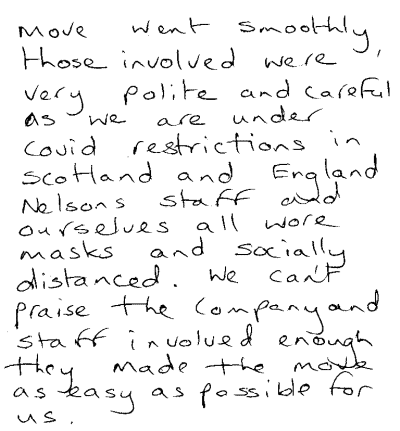 move went smoothly,
those involved were
very polite and careful
as we are under
covid restrictions in
Scotland and England
Nelsons staff and
ourselves all wore
masks and socially
distanced. We can't
praise the company and
staff involved enough
they made the move
as easy as possible for
us.